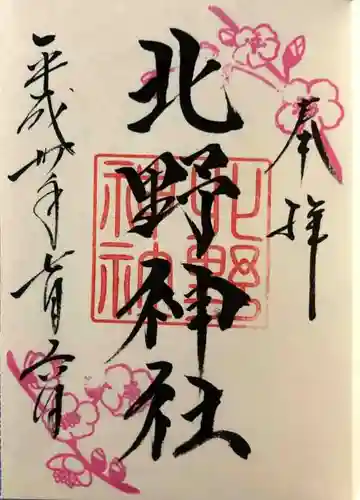 奉拝
北野神社
北野
神社
平成卅年六月六日